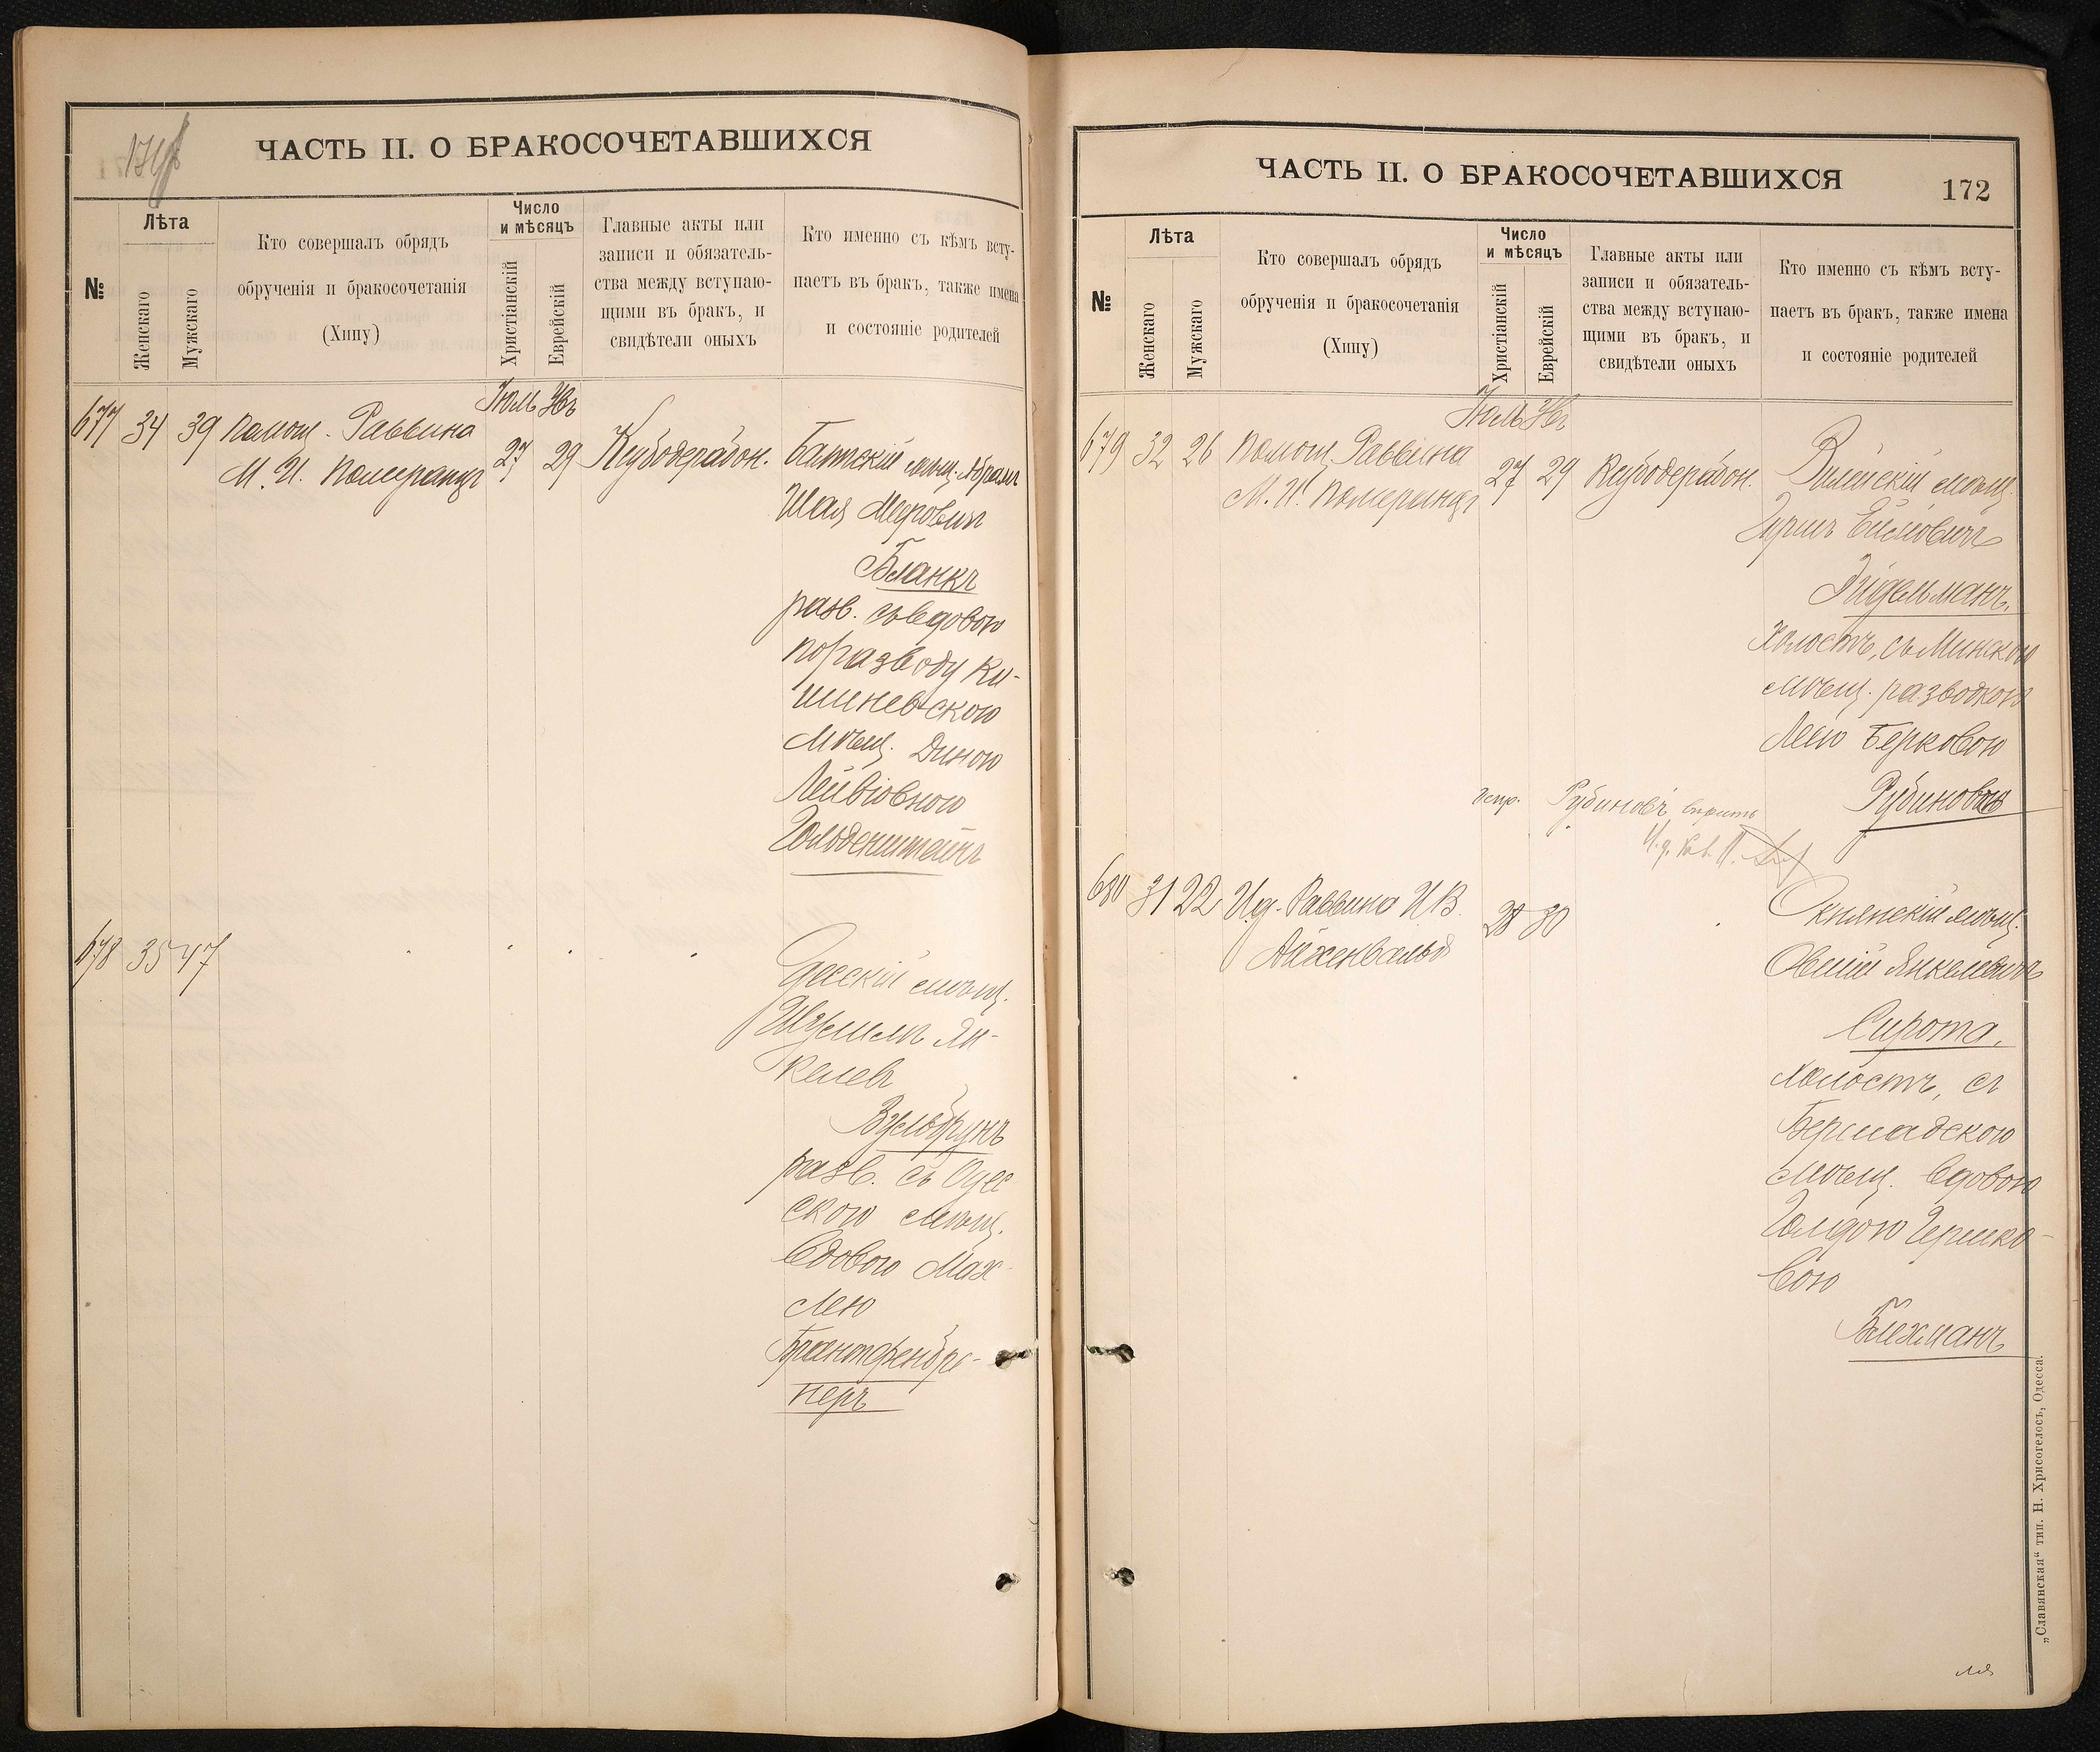 ЧАСТЬ II. О БРАКОСОЧЕТАВШИХСЯ
№
Лѣта
Женскаго
Мужскаго
Кто совершалъ обрядъ
обрученія и бракосочетанія
(Хипу)
Число
и мѣсяцъ
Христіанскій
Еврейскій
Главные акты или
записи и обязатель-
ства между вступаю-
щими въ бракъ, и
свидѣтели оныхъ
Кто именно съ кѣмъ всту-
паетъ въ бракъ, также имена
и состояніе родителей
Іюль
677 34 39 Помощ. Раввина
М. И. Померанцъ
27 29
Балтскій мѣщ. Абрамъ
Шая Меровичъ
Бланкъ
разв. съ вдовою
по разводу Ки-
шиневскою
Мѣщ. Диною
Лейвіовною
Гольденштейнъ
678 35 47
Одесскій мѣщ.
Шулимъ Ян-
келевъ
Вульбрунъ
разв. съ Одес
скою мѣщ.
вдовою Мах
лею
Брантфенбре-
неръ
ЧАСТЬ II. О БРАКОСОЧЕТАВШИХСЯ
172
№
Лѣта
Женскаго
Мужскаго
Кто совершалъ обрядъ
обрученія и бракосочетанія
(Хипу)
Число
и мѣсяцъ
Христіанскій
Еврейскій
Главные акты или
записи и обязатель-
ства между вступаю-
щими въ бракъ, и
свидѣтели оныхъ
Кто именно съ кѣмъ всту-
паетъ въ бракъ, также имена
и состояніе родителей
Іюль
679 32 26 Помощ. Раввина
М. И. Померанцъ
27 29
Вилейскій мѣщ.
Гиршъ
Эйдельманъ,
холостъ, съ Минскою
мѣщ. разводкою
Леею Берковою
Рубиновъ
испр. Рубиновъ вѣрить
680 31 22 И. д. Раввина И В.
Айхенвальдъ
28 30
Окнянскій мѣщ.
Овшій Янкелевичъ
Сирота,
холостъ, съ
Бершадскою
мѣщ. вдовою
Голдою Гершко-
вою
Блехманъ
„Славянская“ тип. Н. Хрисогелосъ, Одесса.